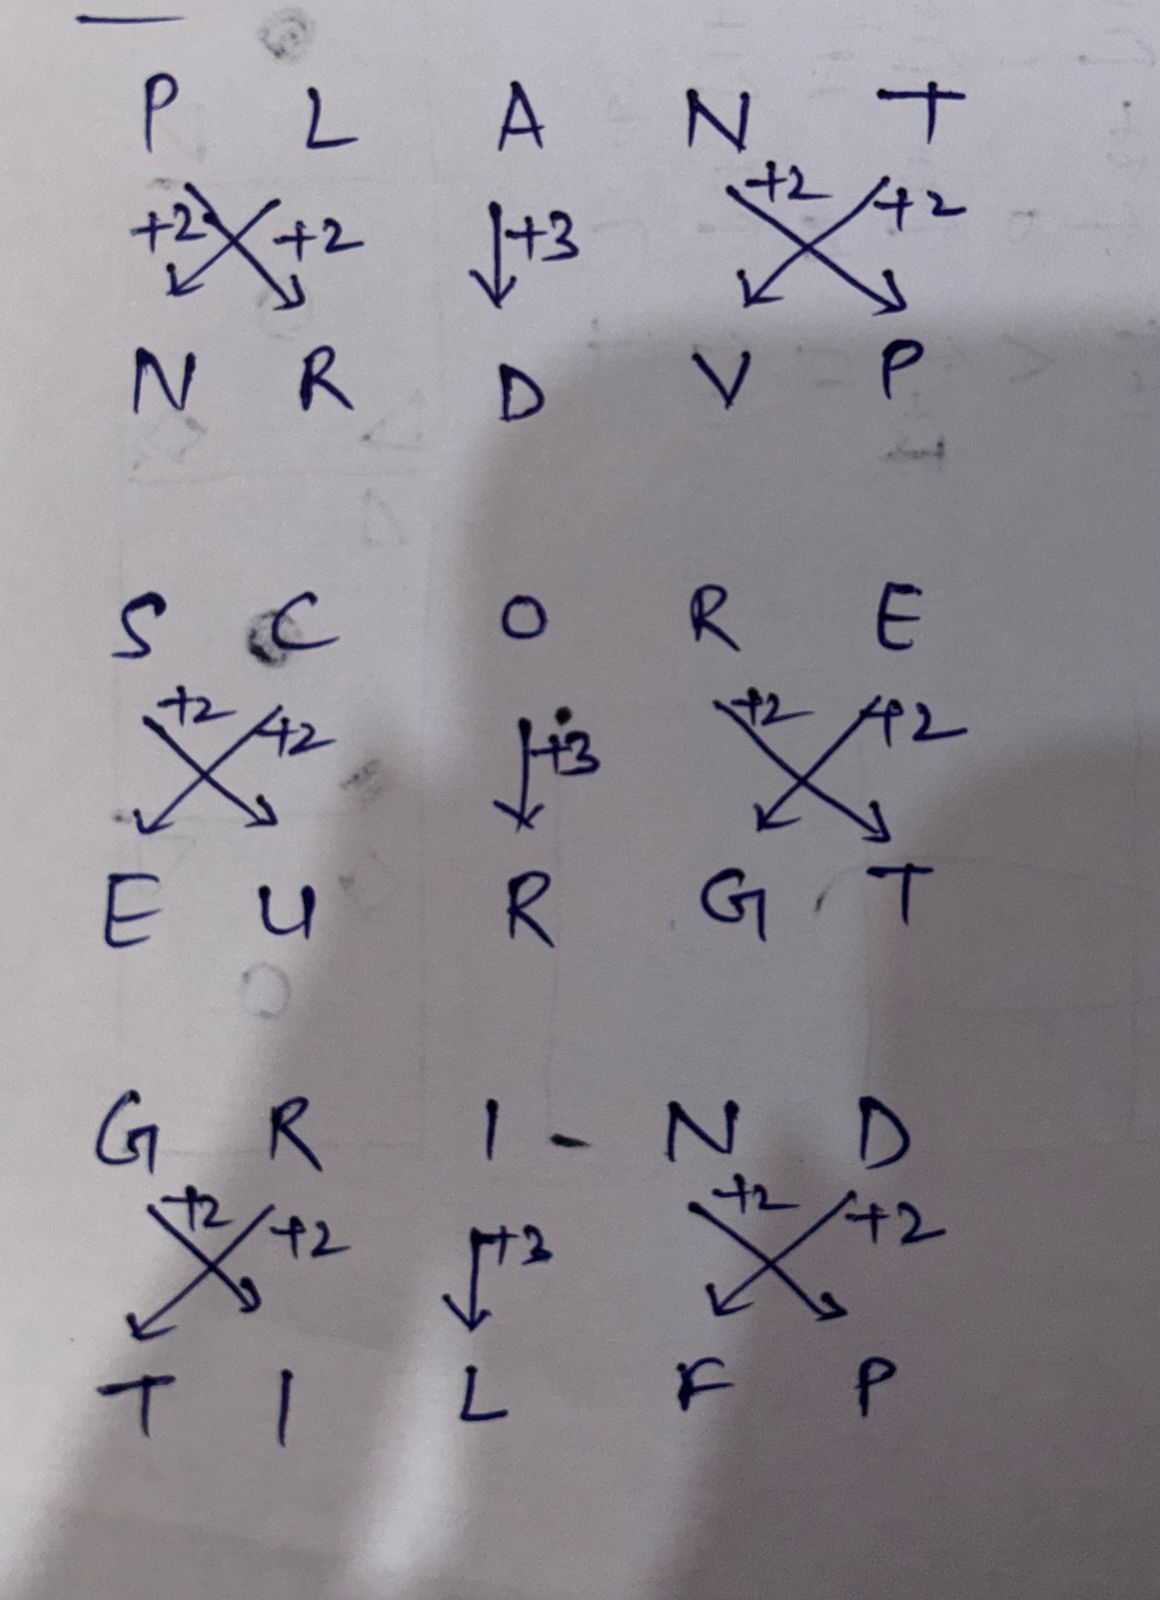 P L A N T
+2 +2 +3 +2 +2
N R D V P
S C O R E
+2 +2 +3 +2 +2
E U R G T
G R I N D
+2 +2 +3 +2 +2
T I L F P